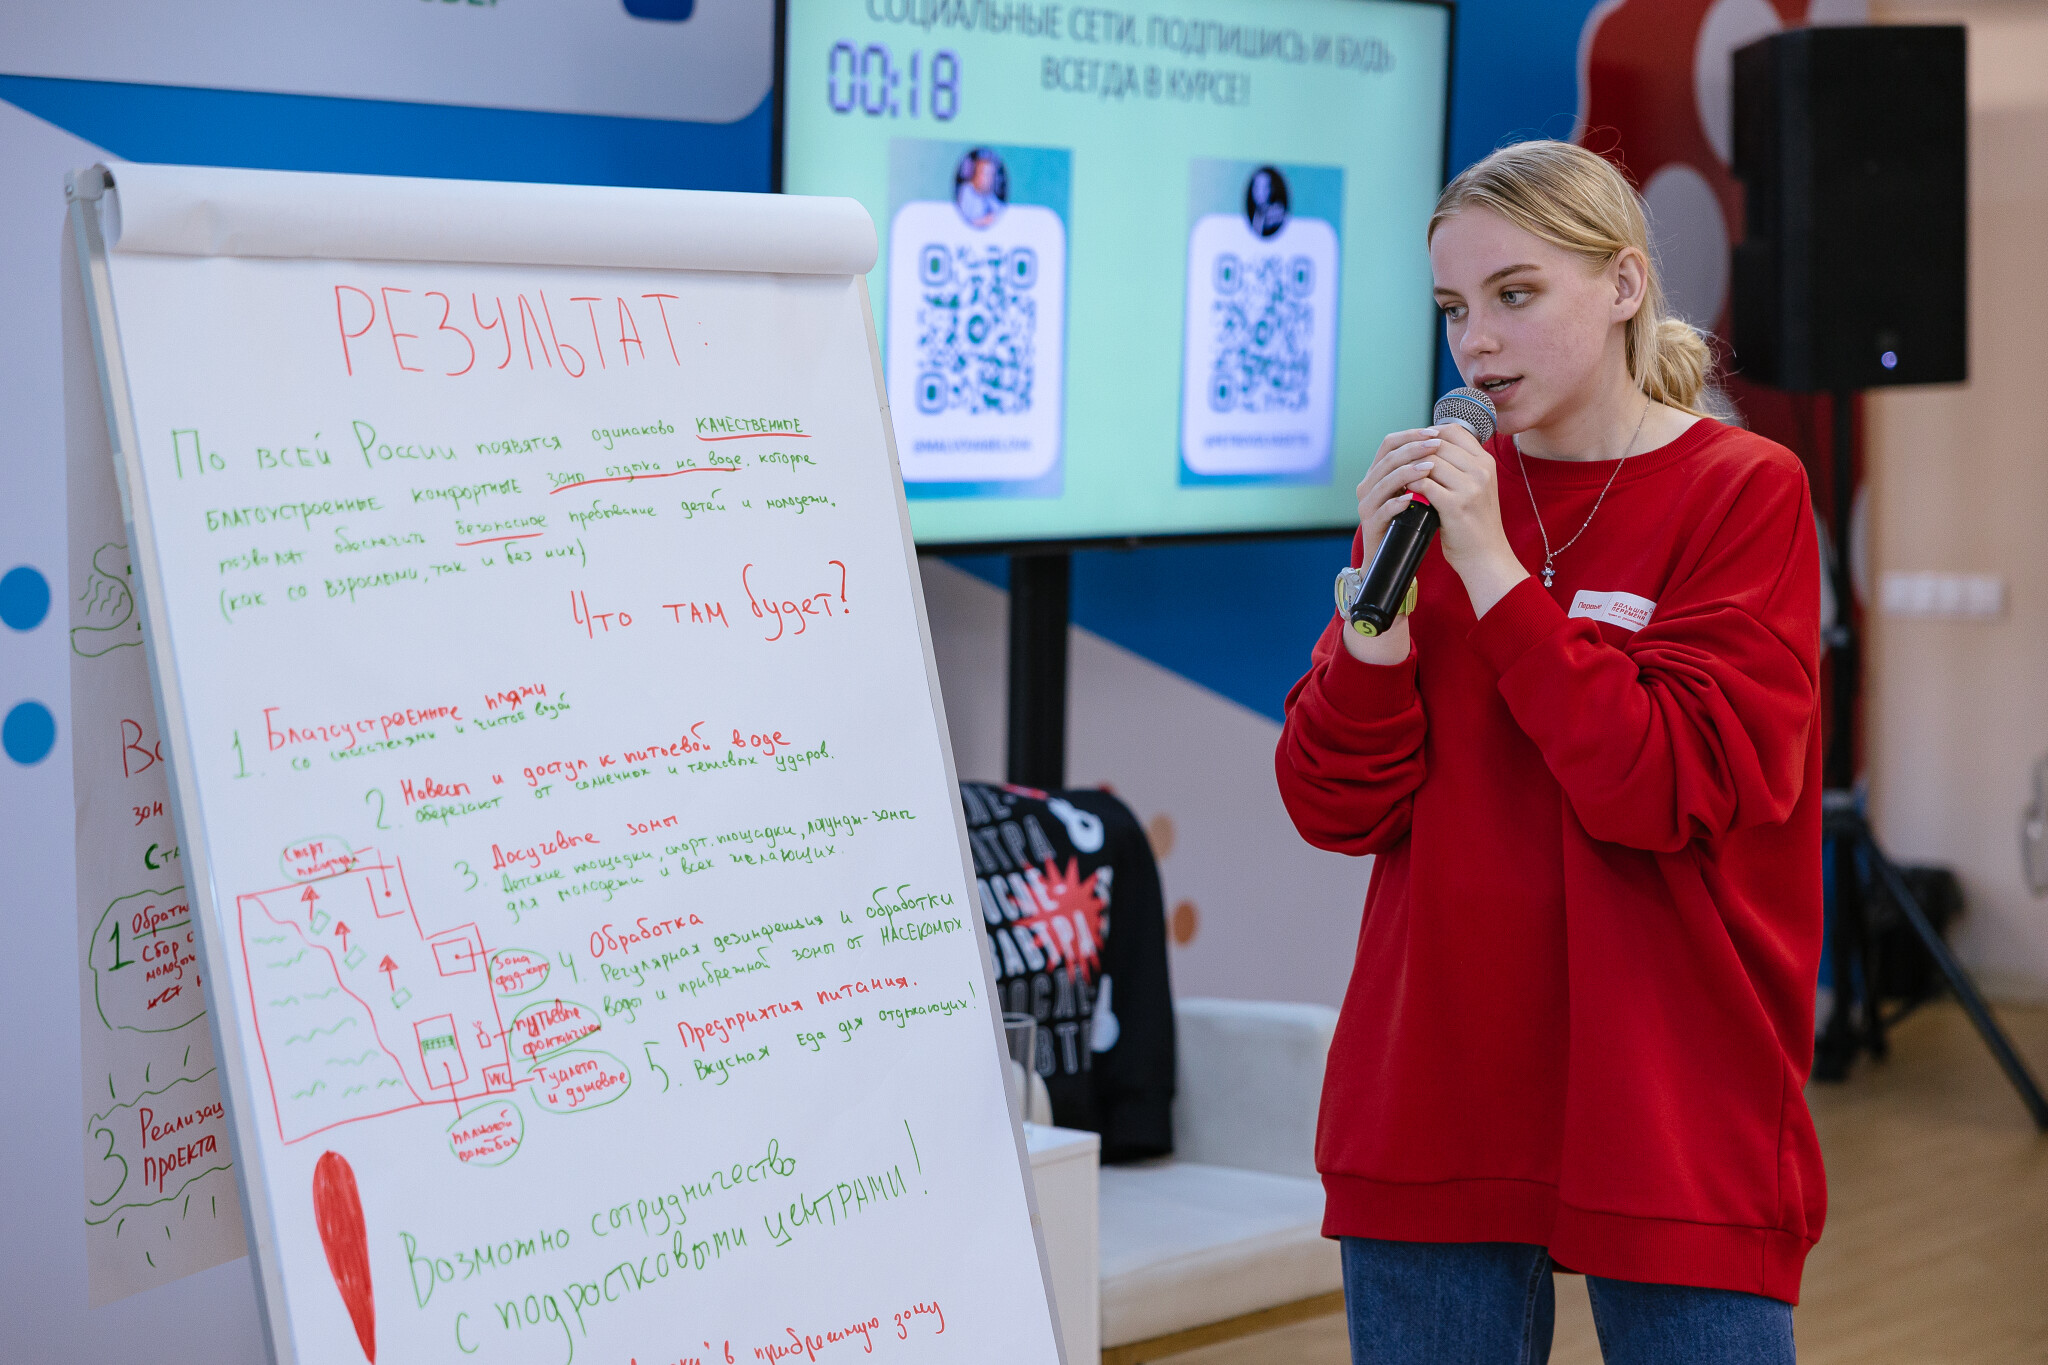 СОЦИАЛЬНЫЕ СЕТИ. ПОДПИШИСЬ И БУДЬ
ВСЕГДА В КУРСЕ!
00:18
РЕЗУЛЬТАТ:
По всей России появятся одинаково КАЧЕСТВЕННЫЕ
БЛАГОУСТРОЕННЫЕ КОМФОРТНЫЕ зоны отдыха на воде, которые
позволят обеспечить безопасное пребывание детей и молодёжи.
(как со взрослыми, так и без них)
Что там будет?
1. Благоустроенные пляжи
со спасателями и чистой водой
2. Навесы и доступ к питьевой воде
оберегают от солнечных и тепловых ударов.
3. Досуговые зоны
Детские площадки, спорт. площадки, лаундж-зоны
для молодежи и всех желающих.
4. Обработка
Регулярная дезинфекция и обработки
воды и прибрежной зоны от НАСЕКОМЫХ.
5. Предприятия питания.
Вкусная еда для отдыхающих!
Спорт.
площадки
Зона
фуд-корт
питьевые
фонтанчики
WC
Туалеты
и душевые
пляжный
волейбол
Возможно сотрудничество
с подростковыми центрами!
в прибрежную зону
зон
1
Сбор
3
Реализац
проекта
Первые
БОЛЬШАЯ
ПЕРЕМЕНА
5